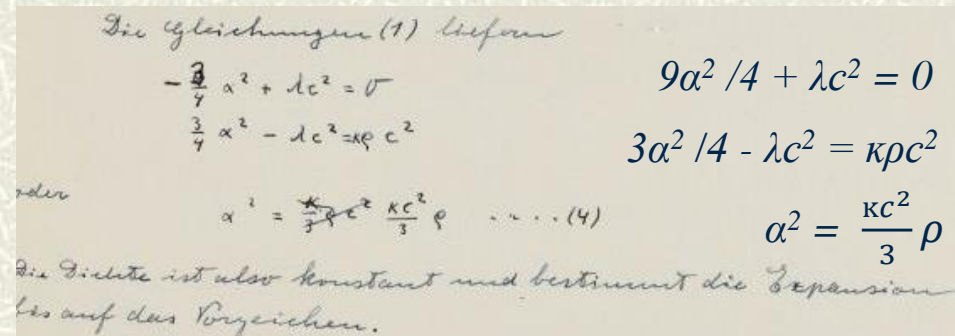 Die Gleichungen (1) liefern
- 3/4 α² + λc² = 0
3/4 α² - λc² = κρ c²
oder
α² = κ/3 ρ c² κc²/3 ρ ..... (4)
Die Dichte ist also konstant und bestimmt die Expansion
bis auf das Vorzeichen.
9α² /4 + λc² = 0
3α² /4 - λc² = κρc²
α² = κc²/3 ρ